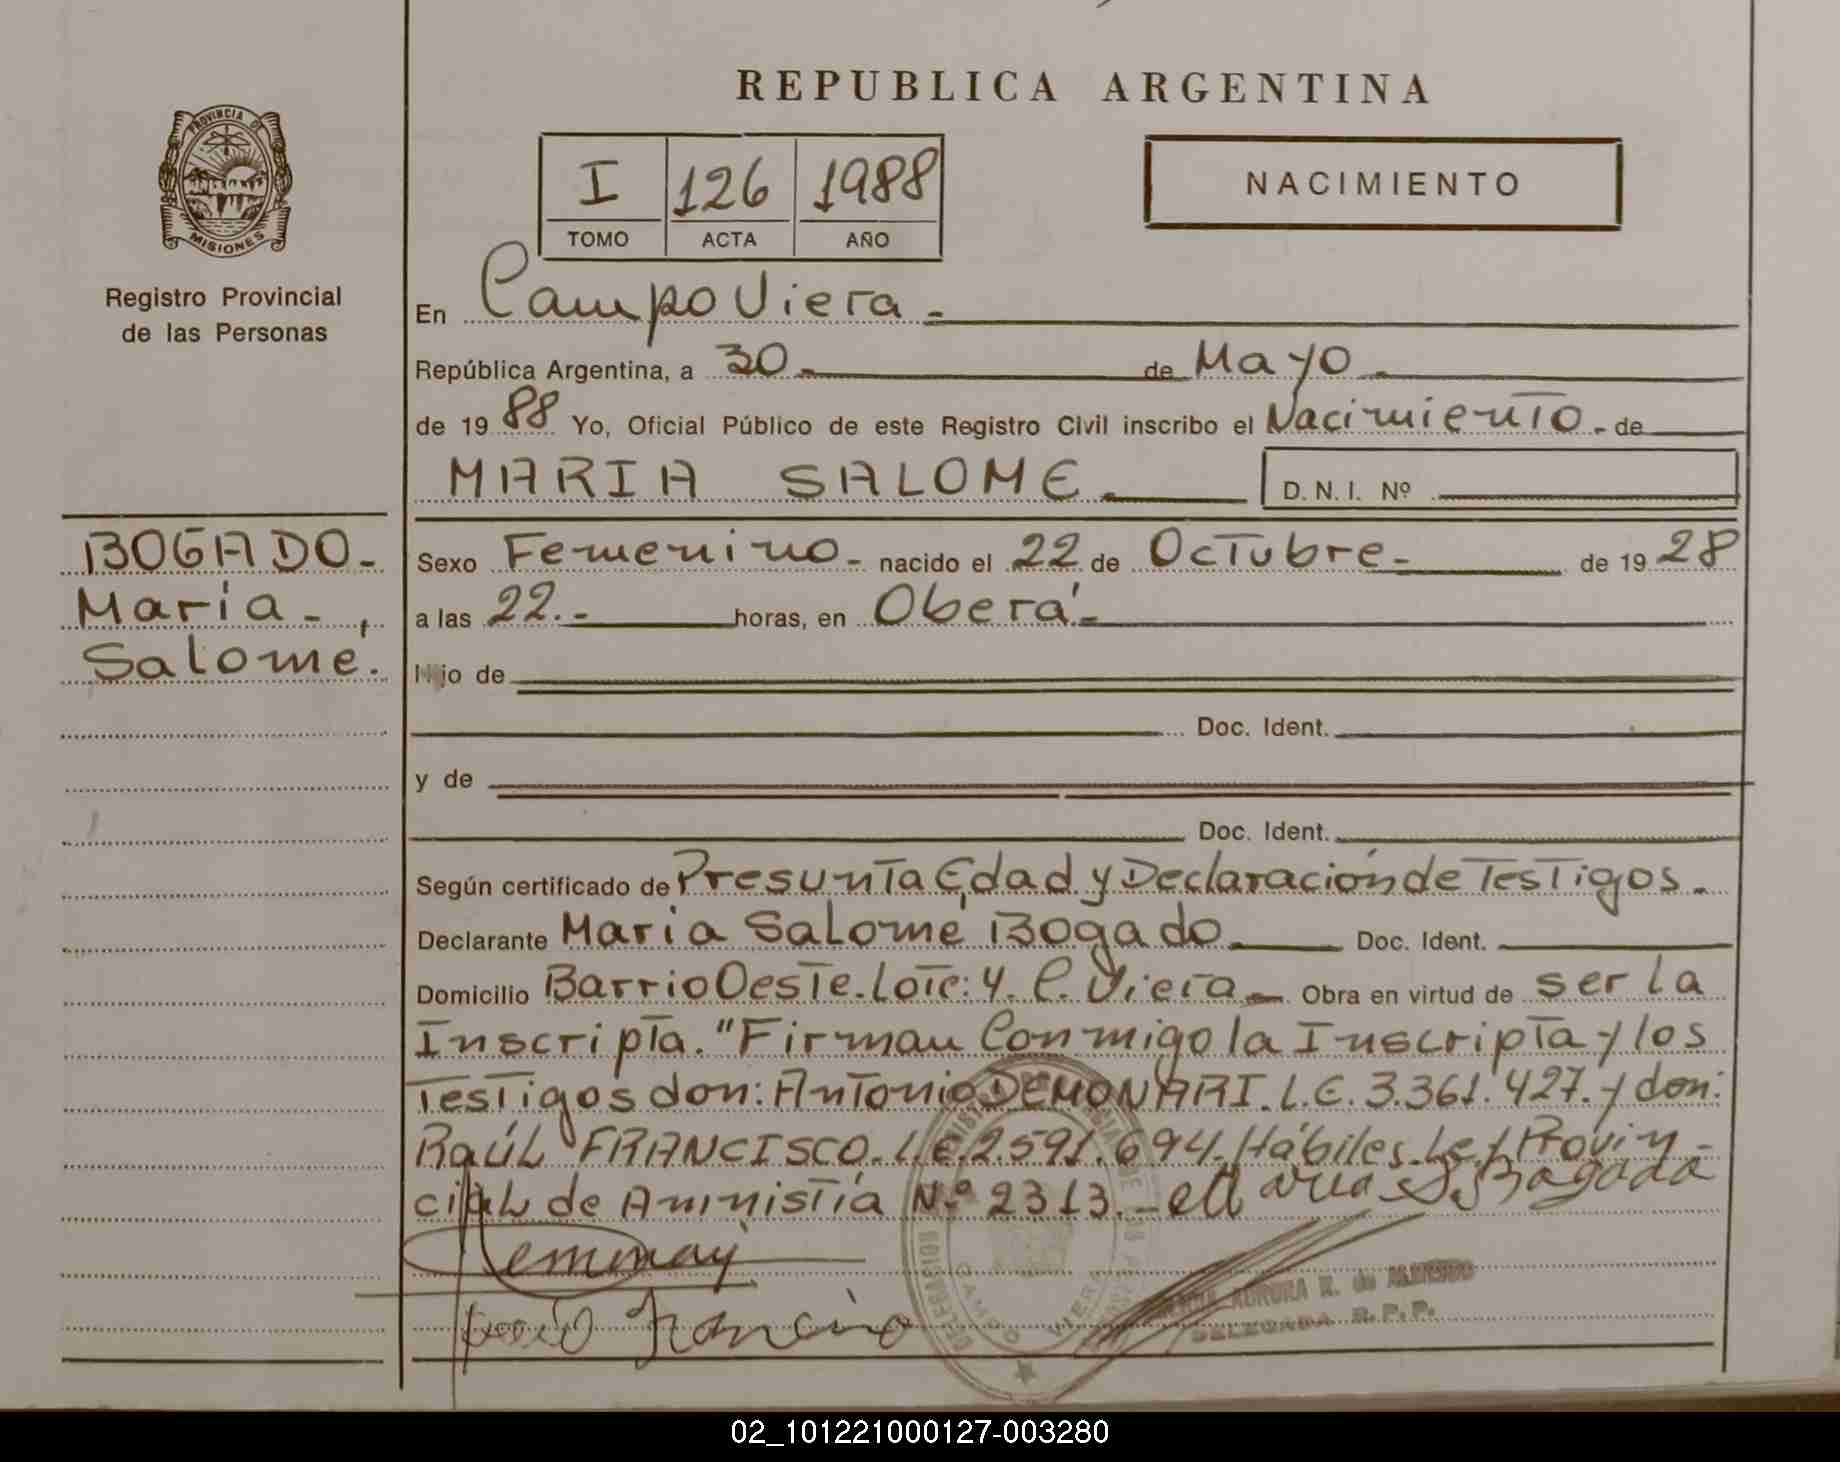 REPUBLICA ARGENTINA
PROVINCIA DE
MISIONES
Registro Provincial
de las Personas
I 126 1988
TOMO ACTA AÑO
NACIMIENTO
En Campo Viera.-
República Argentina, a 30.- de Mayo.-
de 19 88 Yo, Oficial Público de este Registro Civil inscribo el Nacimiento.- de
MARIA SALOME.- D.N.I. Nº
BOGADO.-
María.-,
Salomé.
Sexo Femenino.- nacido el 22 de Octubre.- de 19 28
a las 22.- horas, en Oberá.-
Hijo de
Doc. Ident.
y de
Doc. Ident.
Según certificado de Presunta Edad y Declaración de Testigos.-
Declarante María Salomé Bogado Doc. Ident.
Domicilio Barrio Oeste. Lote: 4. C. Viera.- Obra en virtud de ser la
Inscripta. "Firman Conmigo la Inscripta y los
Testigos don: Antonio DEMONARI. L.E. 3.361.427. y don:
Raúl FRANCISCO. L.E. 2.591.694. Hábiles. Ley Provin-
cial de Aministía N.º 2313.- Maria S. Bogado
AURORA R. de
DELEGADA R.P.P.
CAMPO VIERA
02_101221000127-003280